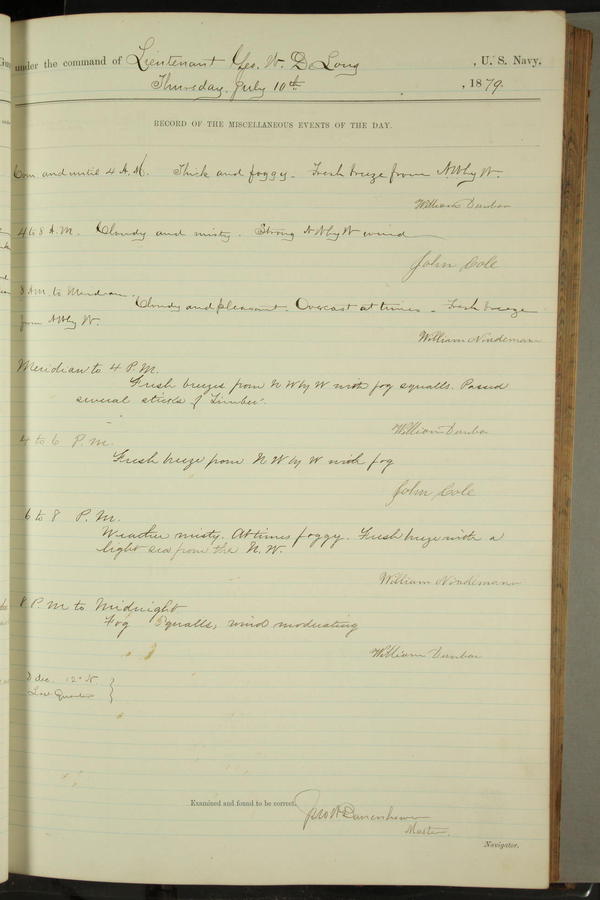 under the command of Lieutenant Geo. W. De Long, U. S. Navy,
Thursday, July 10th, 1879.
RECORD OF THE MISCELLANEOUS EVENTS OF THE DAY.
Com. and until 4 A.M. Thick and foggy. Fresh breeze from NW by W.
William Dunbar
4 to 8 A.M. Cloudy and misty. Strong NW by W wind
John Cole
8 A.M. to Meridian. Cloudy and pleasant. Overcast at times. Fresh breeze
from NW by W.
William Nindemann
Meridian to 4 P.M.
Fresh breezes from N W by W with fog squalls. Passed
several sticks of Timber.
William Dunbar
4 to 6 P.M.
Fresh breeze from N W by W with fog
John Cole
6 to 8 P.M.
Weather misty. At times foggy. Fresh breeze with a
light sea from the N.W.
William Nindemann
8 P.M to Midnight
Fog Squalls, wind moderating
William Dunbar
dec. 12° N
Last Quarter
Examined and found to be correct.
Jno W Danenhower
Master.
Navigator.